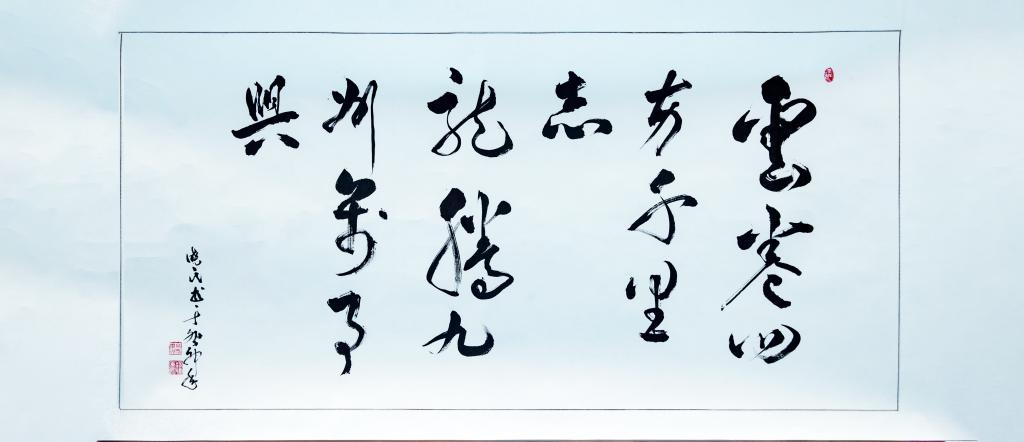 雲卷四
方千里
志
龍騰九
州萬事
興